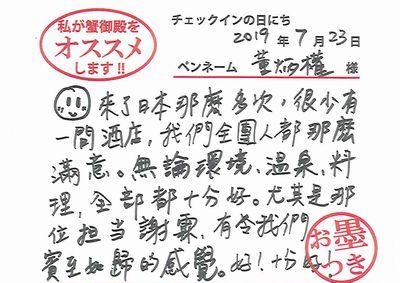 私が蟹御殿を
オススメ
します!!
チェックインの日にち
2019年7月23日
ペンネーム 董炳權 様
來了日本那麼多次，很少有
一間酒店，我們全團人都那麼
滿意。無論環境、溫泉、料
理，全部都十分好。尤其是那
位担当謝霖，有令我們
賓至如歸的感覺。好！十分好！
お墨
つき